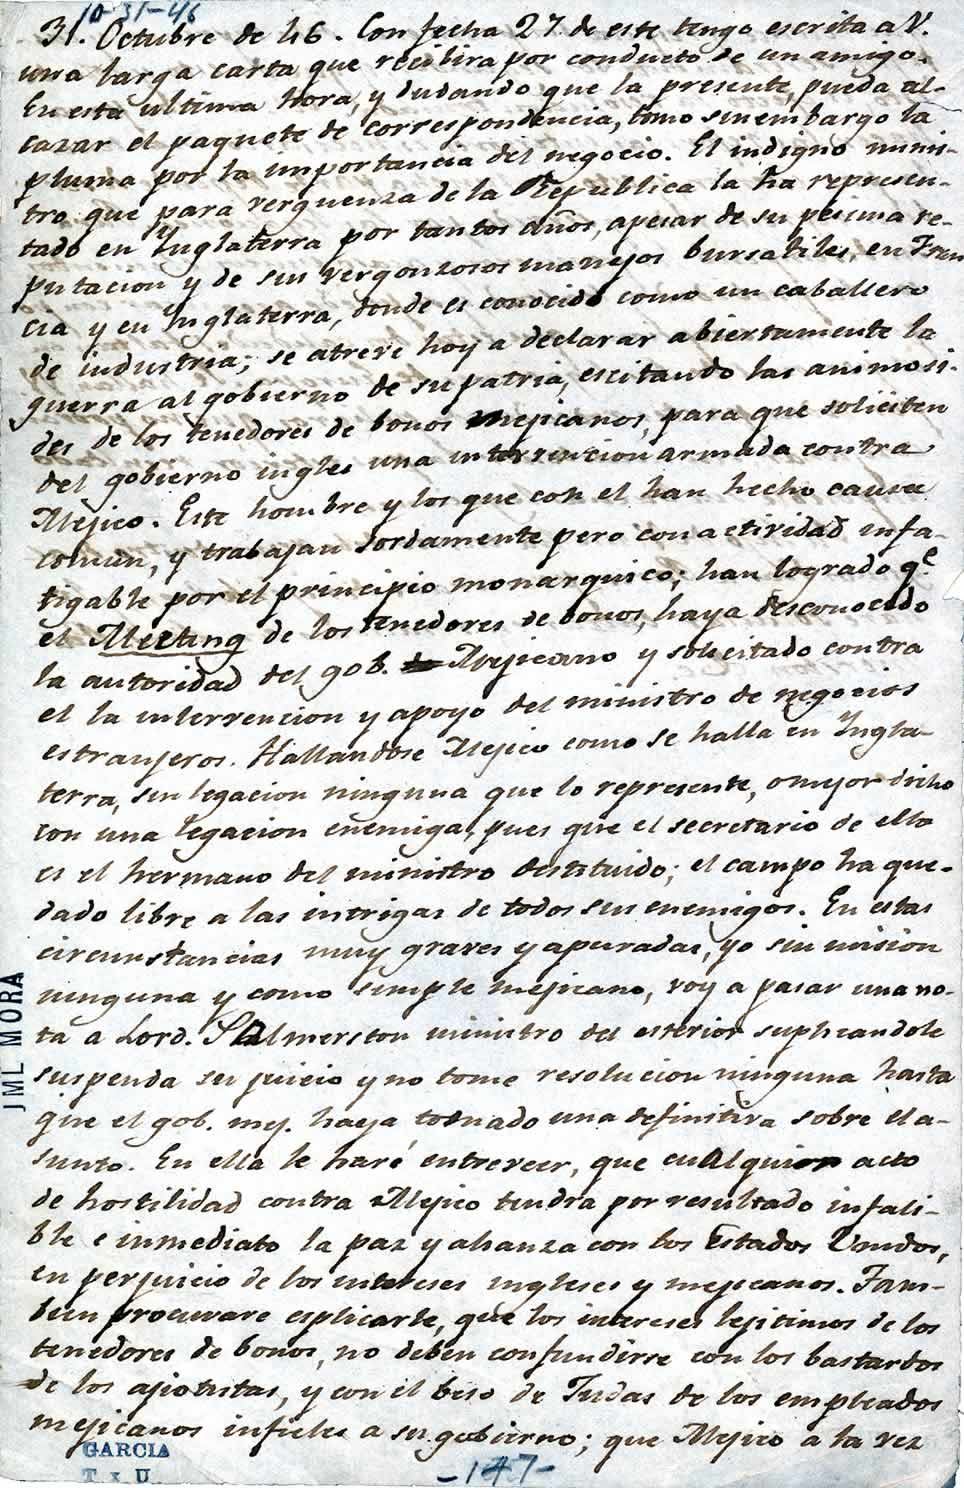 10-31-46
31. Octubre de 46. Con fecha 27 de este tengo escrita a V.
una larga carta que recibira por conducto de un amigo.
En esta ultima hora, y dudando que la presente pueda al-
cazar el paquete de correspondencia, tomo sin embargo la
pluma por la importancia del negocio. El indigno minis-
tro que para verguenza de la Republica la ha represen-
tado en Inglaterra por tantos años, apesar de su pesima re-
putacion y de sus vergonzosos manejos bursatiles, en Fran
cia y en Inglaterra, donde es conocido como un caballero
de industria; se atreve hoy a declarar abiertamente la
guerra al gobierno de su patria, escitando las animosi-
des de los tenedores de bonos mejicanos, para que soliciten
del gobierno ingles una intervencion armada contra
Mejico. Este hombre y los que con el han hecho causa
comun, y trabajan sordamente pero con actividad infa-
tigable por el principio monarquico; han logrado qe
el Meeting de los tenedores de bonos, haya desconocido
la autoridad del gob. Mejicano y solicitado contra
el la intervencion y apoyo del ministro de negocios
estranjeros. Hallandose Mejico como se halla en Ingla-
terra, sin legacion ninguna que lo represente, o mejor dicho
con una legacion enemiga, pues que el secretario de ella
es el hermano del ministro destituido; el campo ha que-
dado libre a las intrigas de todos sus enemigos. En estas
circunstancias muy graves y apuradas, yo sin mision
ninguna y como simple mejicano, voy a pasar una no-
ta a Lord. Palmerston ministro del esterior suplicandole
suspenda su juicio y no tome resolucion ninguna hasta
que el gob. mej. haya tomado una definitiva sobre el a-
sunto. En ella le haré entreveer, que cualquier acto
de hostilidad contra Mejico tendra por resultado infali-
ble e inmediato la paz y alianza con los Estados Unidos,
en perjuicio de los intereses ingleses y mejicanos. Tam-
bien procurare esplicarle, que los intereses lejitimos de los
tenedores de bonos, no deben confundirse con los bastardos
de los ajiotistas, y con el beso de Judas de los empleados
mejicanos infieles a su gobierno; que Mejico a la vez
JML MORA
GARCIA
-147-
T x U